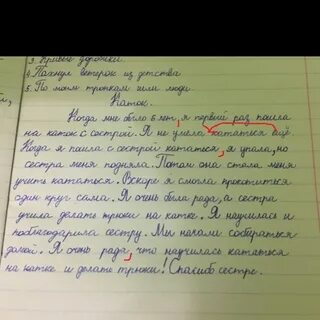 3. Кривые дорожки.
4. Пахнул ветерок из детства
5. По моим тропкам шли люди.
Каток.
Когда мне было 6 лет, я первый раз пошла
на каток с сестрой. Я не умела кататься ещё.
Когда я пошла с сестрой кататься, я упала, но
сестра меня подняла. Потом она стала меня
учить кататься. Вскоре я смогла прокатиться
один круг сама. Я очень была рада, а сестра
учила делать трюки на катке. Я научилась и
поблагодарила сестру. Мы начали собираться
домой. Я очень рада, что научилась кататься
на катке и делать трюки! Спасибо сестре.